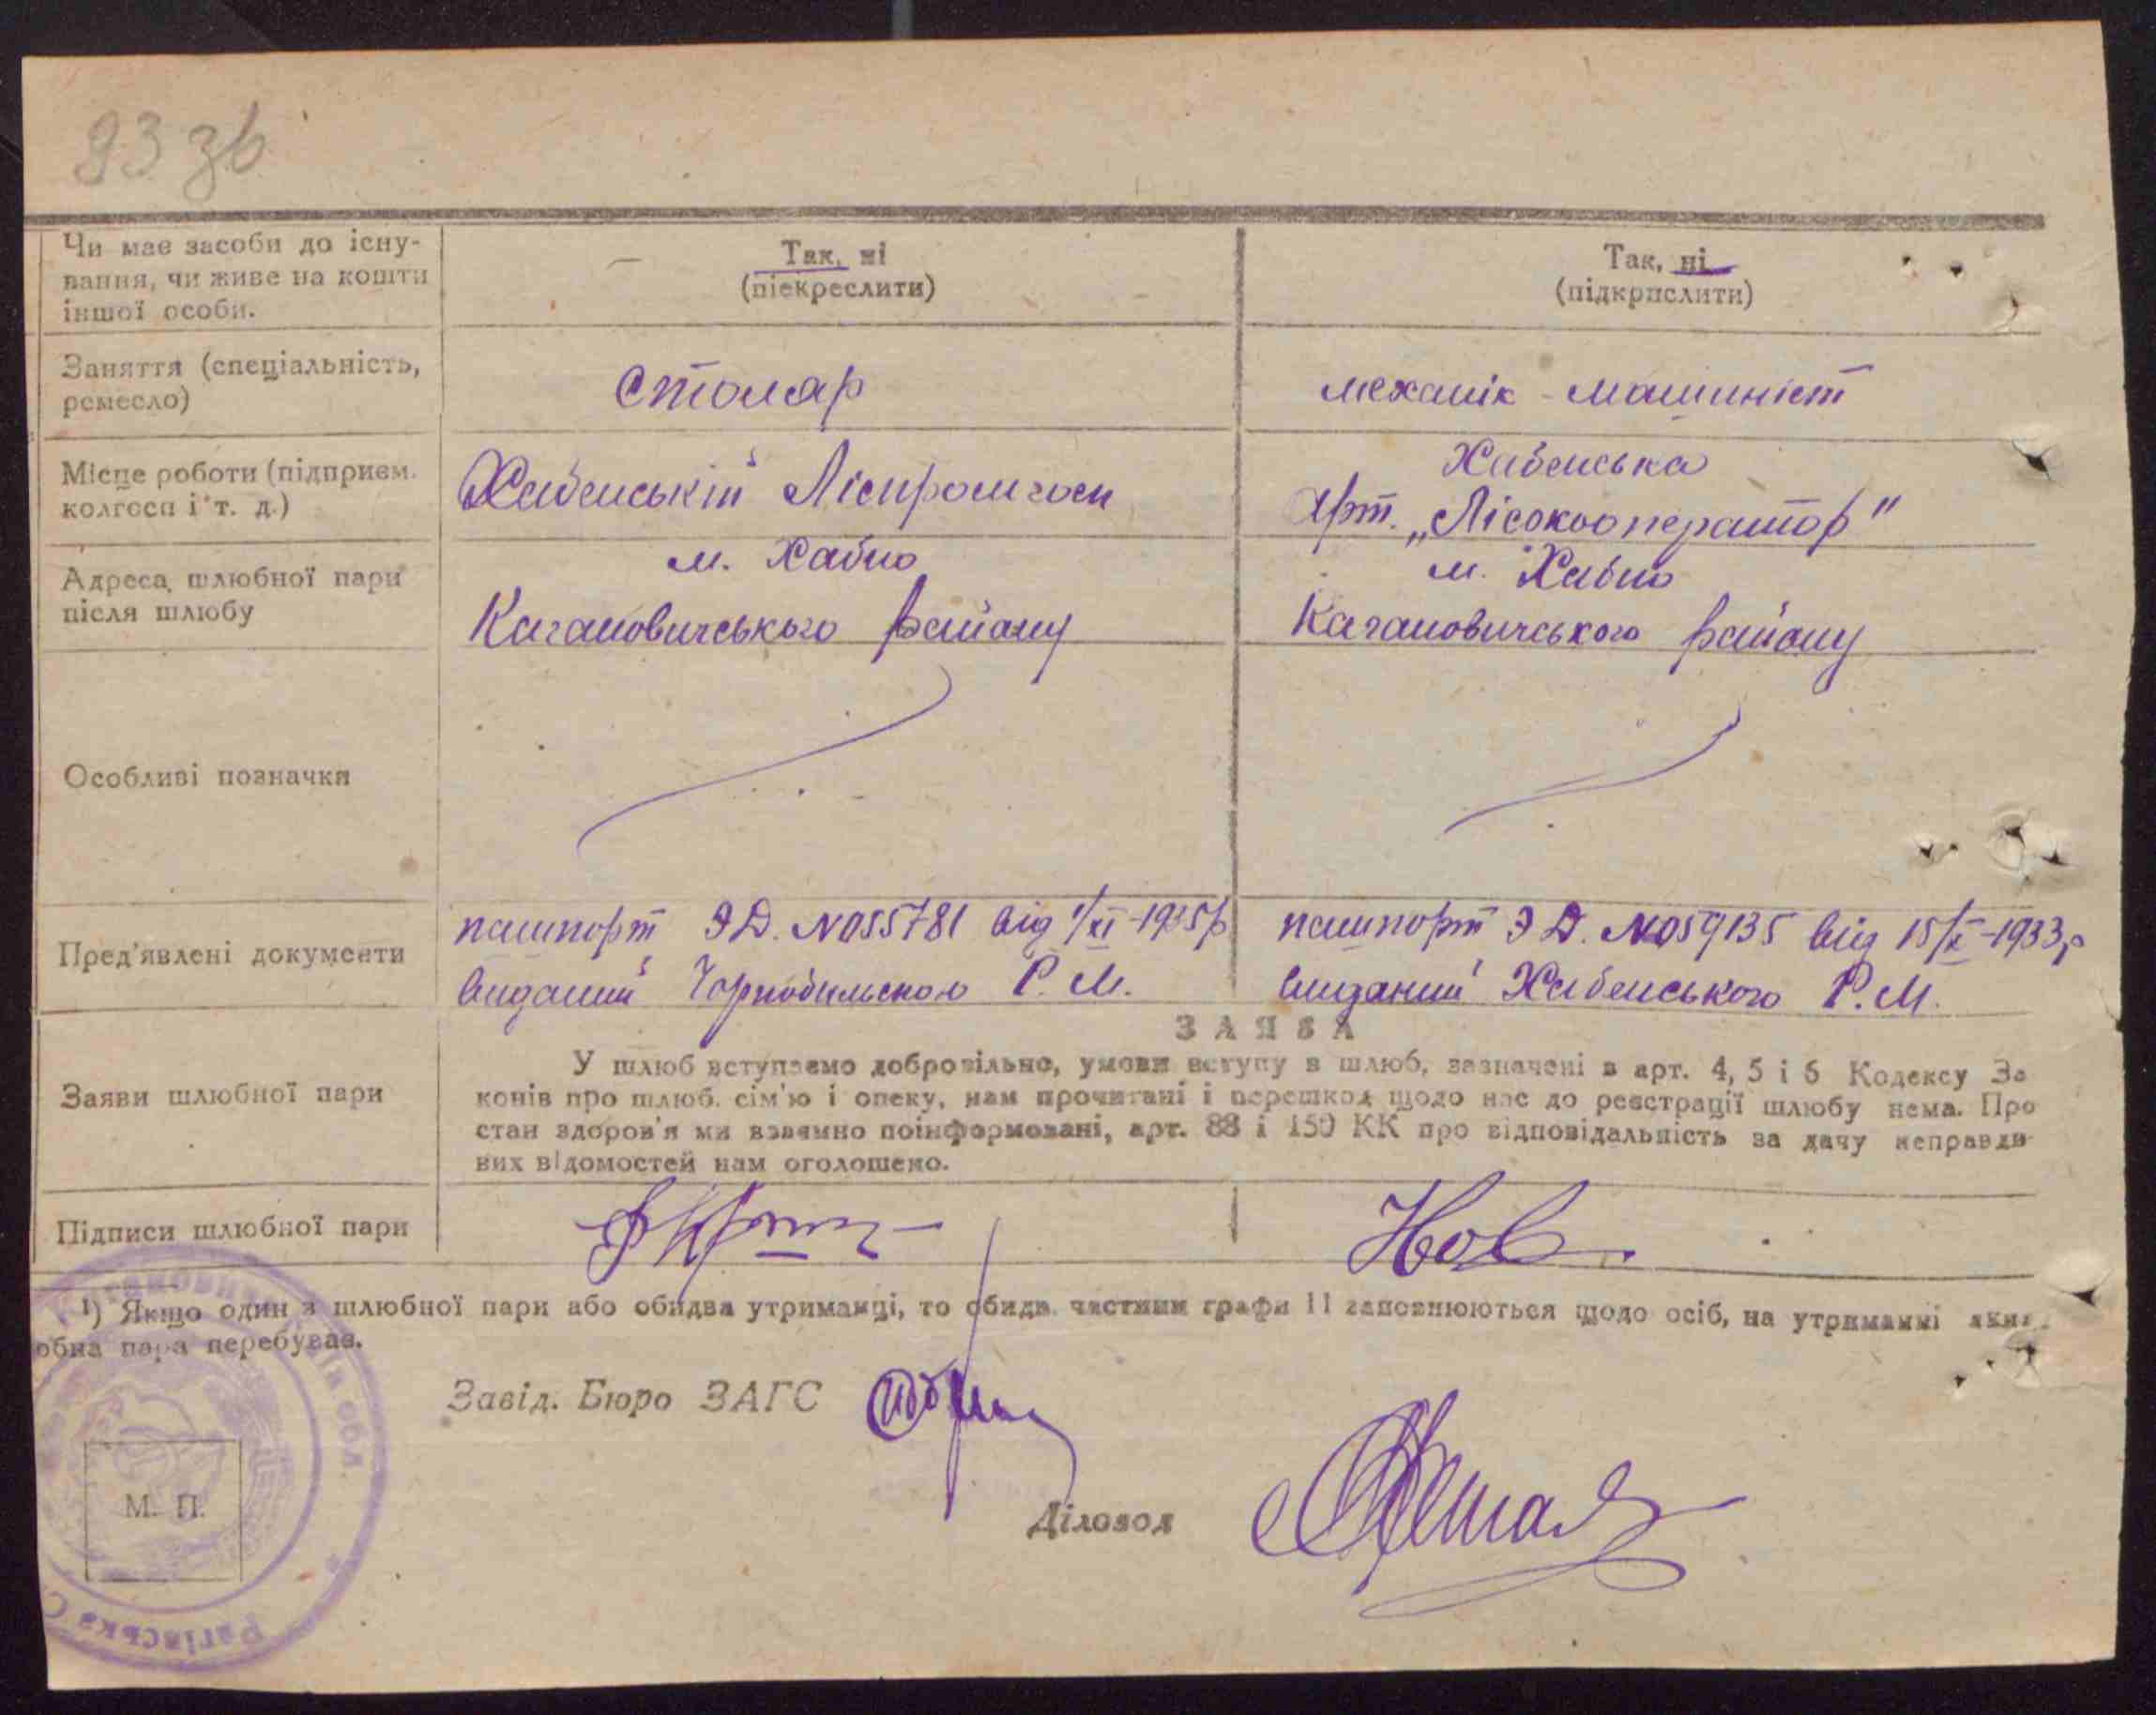 93 зв
Чи має засоби до існу-
вання, чи живе на кошти
іншої особи.
Так, ні
(піекреслити)
Так, ні
(підкрислити)
Заняття (спеціальність,
ремесло)
столяр
механік - машиніст
Місце роботи (підприєм.
колгосп і т. д.)
Хабенській Ліспромгосп
Хабенська
Арт. „Лісокооператор"
Адреса шлюбної пари
після шлюбу
м. Хабно
Кагановичського району
м. Хабно
Кагановичського району
Особливі позначки
Пред'явлені документи
пашпорт ЭД. №055781 від 1/XI-1935р
виданий Чорнобильською Р. М.
пашпорт ЭД. №059135 від 15/X-1933р
виданий Хабенського Р. М.
ЗАЯВА
Заяви шлюбної пари
У шлюб вступаємо добровільно, умови вступу в шлюб, зазначені в арт. 4, 5 і 6 Кодексу За
конів про шлюб. сім'ю і опеку, нам прочитані і перешкод щодо нас до реєстрації шлюбу нема. Про
стан здоров'я ми взаємно поінформовані, арт. 88 і 150 КК про відповідальність за дачу неправди-
вих відомостей нам оголошено.
Підписи шлюбної пари
Нов
¹) Якщо один з шлюбної пари або обидва утриманці, то обидв. частини графи 11 заповнюються щодо осіб, на утриманні яких
обна пара перебуває.
Завід. Бюро ЗАГС
М. П.
Діловод